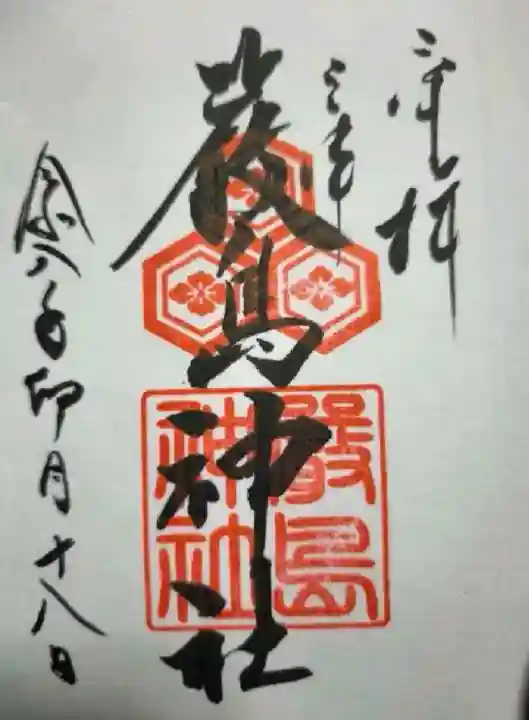 奉拝
厳島神社
令和八年卯月十八日
嚴島
神社